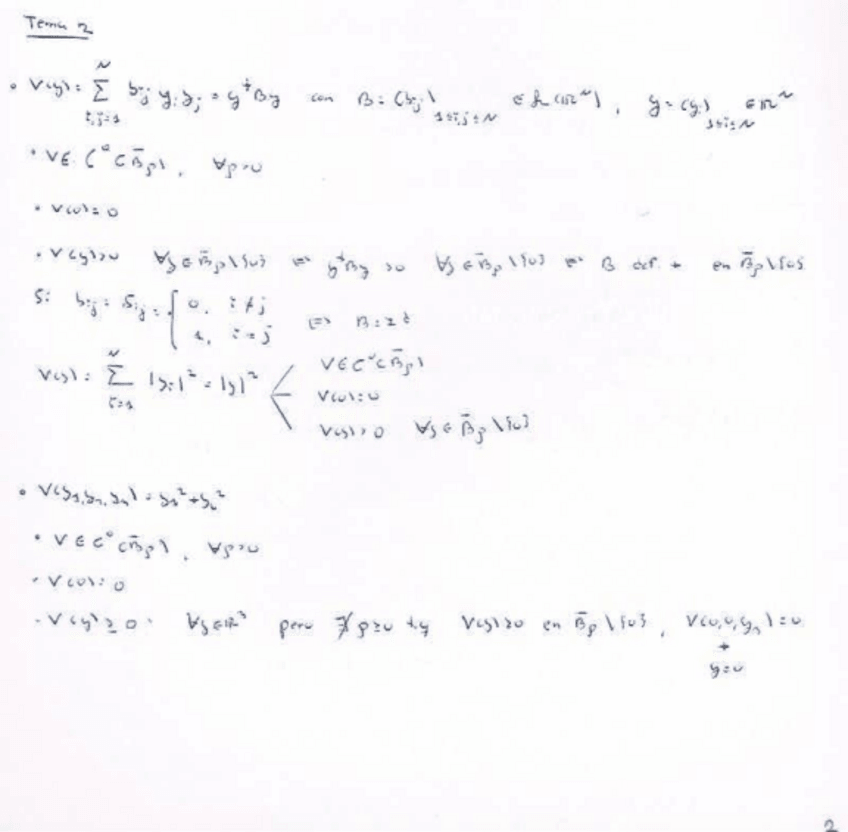 Tema 2
• V(y) = ∑_{i,j=1}^{N} b_{ij} y_i y_j = y^t B y con B = (b_{ij})_{1≤i,j≤N} ∈ L(ℝ^N), y = (y_i)_{1≤i≤N} ∈ ℝ^N
• V ∈ C^0(B̄_ρ), ∀ρ>0
• V(0) = 0
• V(y)>0 ∀y ∈ B̄_ρ\{0} ⇔ y^t B y >0 ∀y ∈ B̄_ρ\{0} ⇔ B def. + en B̄_ρ\{0}
Si b_{ij} = δ_{ij} = { 0, i ≠ j
1, i = j ⇔ B = Id
V(y) = ∑_{i=1}^{N} |y_i|^2 = |y|^2
V ∈ C^0(B̄_ρ)
V(0) = 0
V(y) > 0 ∀y ∈ B̄_ρ\{0}
• V(y_1, y_2, y_3) = y_1^2 + y_2^2
• V ∈ C^0(B̄_ρ), ∀ρ>0
• V(0) = 0
• V(y) ≥ 0 ∀y ∈ ℝ^3 pero ∄ ρ>0 t.q V(y)>0 en B̄_ρ\{0}, V(0,0,y_3) = 0
⇏
y=0
2